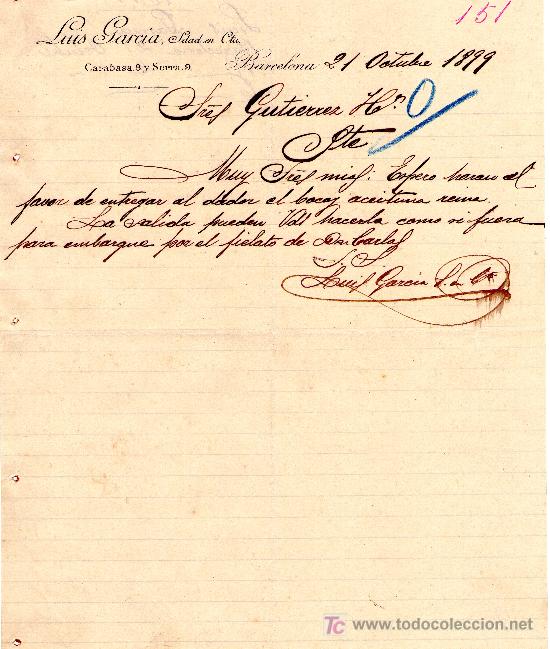 151
Luis García, Sdad. en Cta.
Carabasa, 8 y Serra, 9.
Barcelona 21 Octubre 1899
Sres Gutierrez Hnos
Pte
Muy Sres mios: Espero haran el
favor de entregar al dador el bocoy aceituna reina
La salida pueden Vds hacerla como si fuera
para embarque por el fielato de San Carlos
S. S.
Luis García S. en Cta
TC www.todocoleccion.net